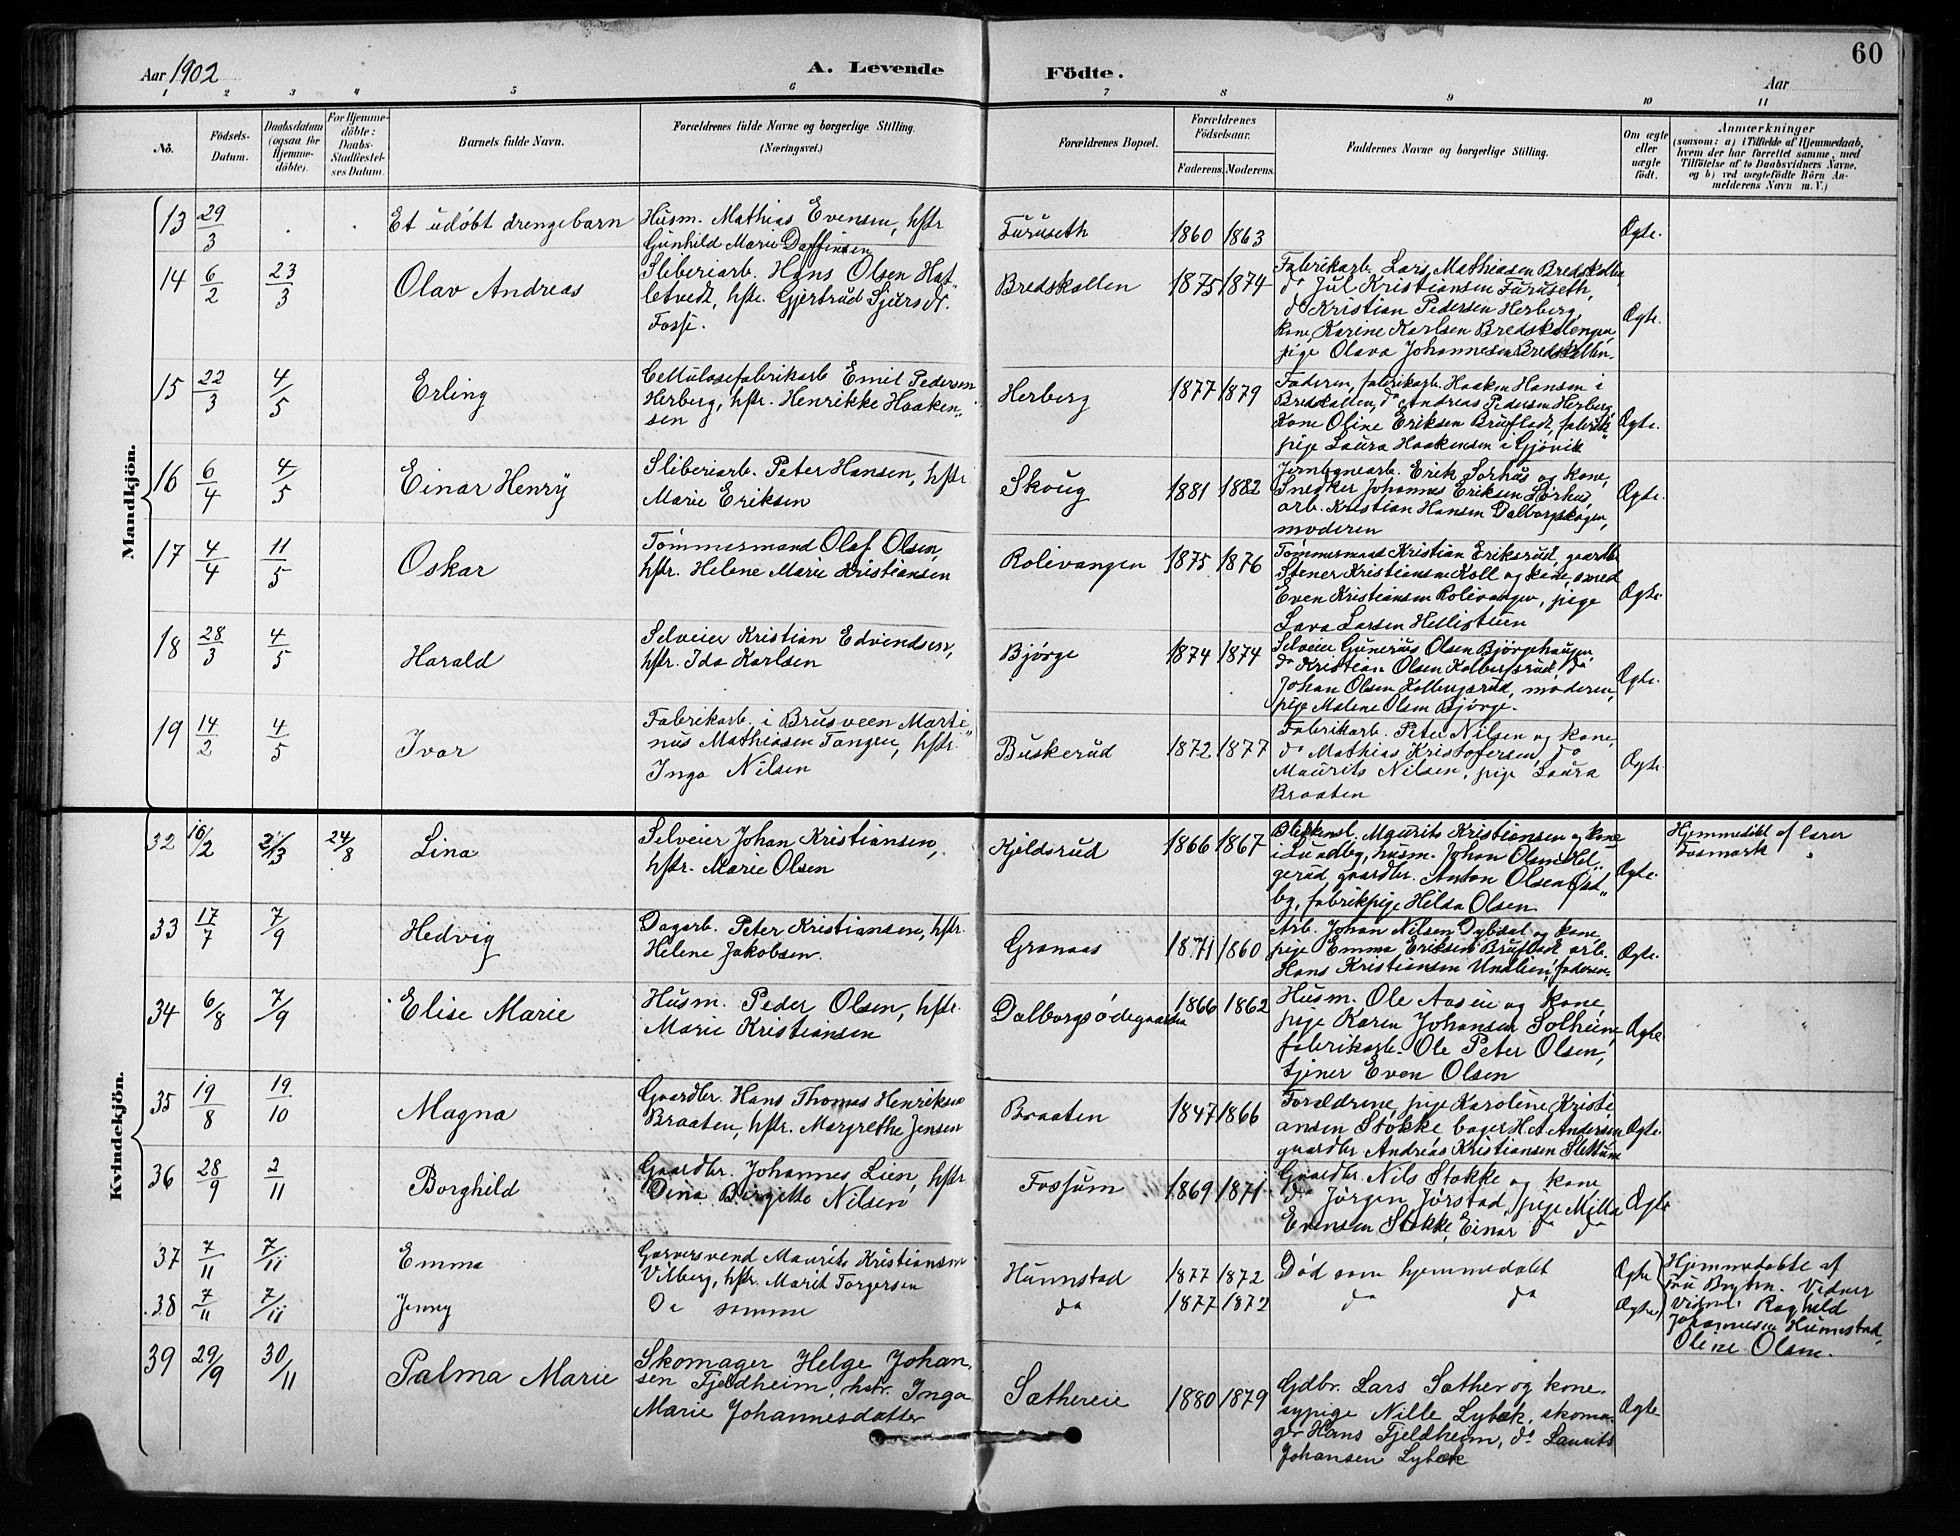 60
Aar 1902
A. Levende
Födte.
Aar
1 2 3 4 5 6 7 8 9 10 11
No.
Födsels-
Datum.
Daabsdatum
(ogsaa for
Hjemme-
døbte).
For Hjemme-
døbte:
Daabs-
Stadfæstel-
ses Datum.
Barnets fulde Navn.
Forældrenes fulde Navne og borgerlige Stilling.
(Næringsvei.)
Forældrenes Bopæl.
Forældrenes
Födselsaar.
Faderens. Moderens.
Faddernes Navne og borgerlige Stilling.
Om ægte
eller
uægte
født.
Anmærkninger
(saasom: a) i Tilfælde af Hjemmedaab,
hvem der har forrettet samme, med
Tilføielse af to Daabsvidners Navne.
og b) ved uægtefödte Börn An-
melderens Navn m.V.)
Mandkjön.
13 29/3 . . Et udøbt drengebarn
Husm. Mathias Evensen, hstr
Gunhild Marie Daffinsen
Furuseth 1860 1863
Ægte.
14 6/2 23/3 Olav Andreas
Sliberiarb. Hans Olsen Hat„
letvedt, hstr. Gjertrud Sjursdt.
Fosse.
Bredskallen 1875 1874
Fabrikarb. Lars Mathiasen Bredskallen
do Jul Kristiansen Furuseth,
do Kristian Pedersen Herberg,
kone Karine Karlsen Bredskalengen,
pige Olava Johannesen Bredskallen.
Ægte.
15 22/3 4/5 Erling
Cellulosefabrikarb Emil Pedersen
Herberg, hstr. Henrikke Haaken„
sen
Herberg 1877 1879
Faderen, fabrikarb. Haaken Hansen i
Bredskallen, do Andreas Pedersen Herberg,
Kone Oline Eriksen Brufladt, fabrik„
pige Laura Haakensen i Gjøvik
Ægte.
16 6/4 4/5 Einar Henry
Sliberiarb. Peter Hansen, hstr
Marie Eriksen
Skoug 1881 1882
Jernbanearb. Erik Sørhus og kone,
Snedker Johannes Eriksen Sørhus,
arb. Kristian Hansen Dalborgskogen,
moderen
Ægte.
17 4/4 11/5 Oskar
Tømmermand Olaf Olsen,
hstr. Helene Marie Kristiansen
Rolivangen 1875 1876
Tømmermand Kristian Eriksrud, gaardbr
Stener Kristiansen Koll og kone, smed
Even Kristiansen Rolivangen, pige
Lava Larsen Hellisteien
Ægte.
18 28/3 4/5 Harald
Selveier Kristian Edvindsen,
hstr. Ida Karlsen
Bjørge 1874 1874
Selveier Gunerius Olsen Bjørgehaugen,
do Kristian Olsen Kolbergsrud, do
Johan Olsen Kolbergsrud, moderen,
pige Malene Olsen Bjørge.
Ægte.
19 14/2 4/5 Ivar
Fabrikarb. i Brusveen Marti„
nus Mathiasen Tangen, hstr.
Inga Nilsen
Buskerud 1872 1877
Fabrikarb. Peter Nilsen og kone,
do Mathias Kristofersen, do
Maurits Nilsen, pige Laura
Braaten
Ægte
Kvindekjön.
32 16/2 2/13 24/8 Lina
Selveier Johan Kristiansen,
hstr. Marie Olsen
Kjeldsrud 1866 1867
Maurits Kristiansen og kone
i Lundby, husm. Johan Olsen Hel„
gerud gaardbr. Anton Olsen Øst„
by, fabrikpige Hilda Olsen
Ægte.
Hjemmedøbt af lærer
Fosmark
33 17/7 7/9 Hedvig
Dagarb. Peter Kristiansen, hstr.
Helene Jakobsen.
Granaas 1871 1860
Arb. Johan Nilsen Dybdal og kone
pige Emma Eriksen Brufladt arb.
Hans Kristiansen Undlien, faderen
Ægte.
34 6/8 7/9 Elise Marie
Husm. Peder Olsen, hstr.
Marie Kristiansen
Dalborgsødegaarden 1866 1862
Husm. Ole Aaseie og kone,
pige Karen Johansen Solheim,
fabrikarb. Ole Peter Olsen,
tjener Even Olsen
Ægte
35 19/8 19/10 Magna
Gaardbr. Hans Thomas Henriksen
Braaten, hstr. Margrethe Jensen
Braaten 1847 1866
Forældrene, pige Karoline Kristi
ansen Stokke bager H.A. Andersen
gaardbr Andreas Kristiansen Slettum
Ægte.
36 28/9 2/11 Borghild
Gaardbr. Johannes Lien, hstr
Dina Birgitte Nilsen
Fossum 1869 1871
Gaardbr. Nils Stokke og kone
do Jørgen Jørstad, pige Milla
Evensen Stokke, Einar do do
Ægte
37 7/11 7/11 Emma
Garversvend Maurits Kristiansen
Vilberg, hstr. Marit Torgersen
Hunnstad 1877 1872
Død som hjemmedøbt
Ægte
Hjemmedøbte af
38 7/11 7/11 Jenny
De samme
do 1877 1872
do do
Ægte
Vidner
Raghild
Johannesen Hunnstad,
Oline Olsen.
39 29/9 30/11 Palma Marie
Skomager Helge Johan„
sen Fjeldheim, hstr. Inga
Marie Johannesdatter
Sæthereie 1880 1879
Gdbr. Lars Sæther og kone.
sypige Nille Lybæk, skoma„
ger Hans Fjeldheim, do Laurits
Johansen Lybæk
Ægte